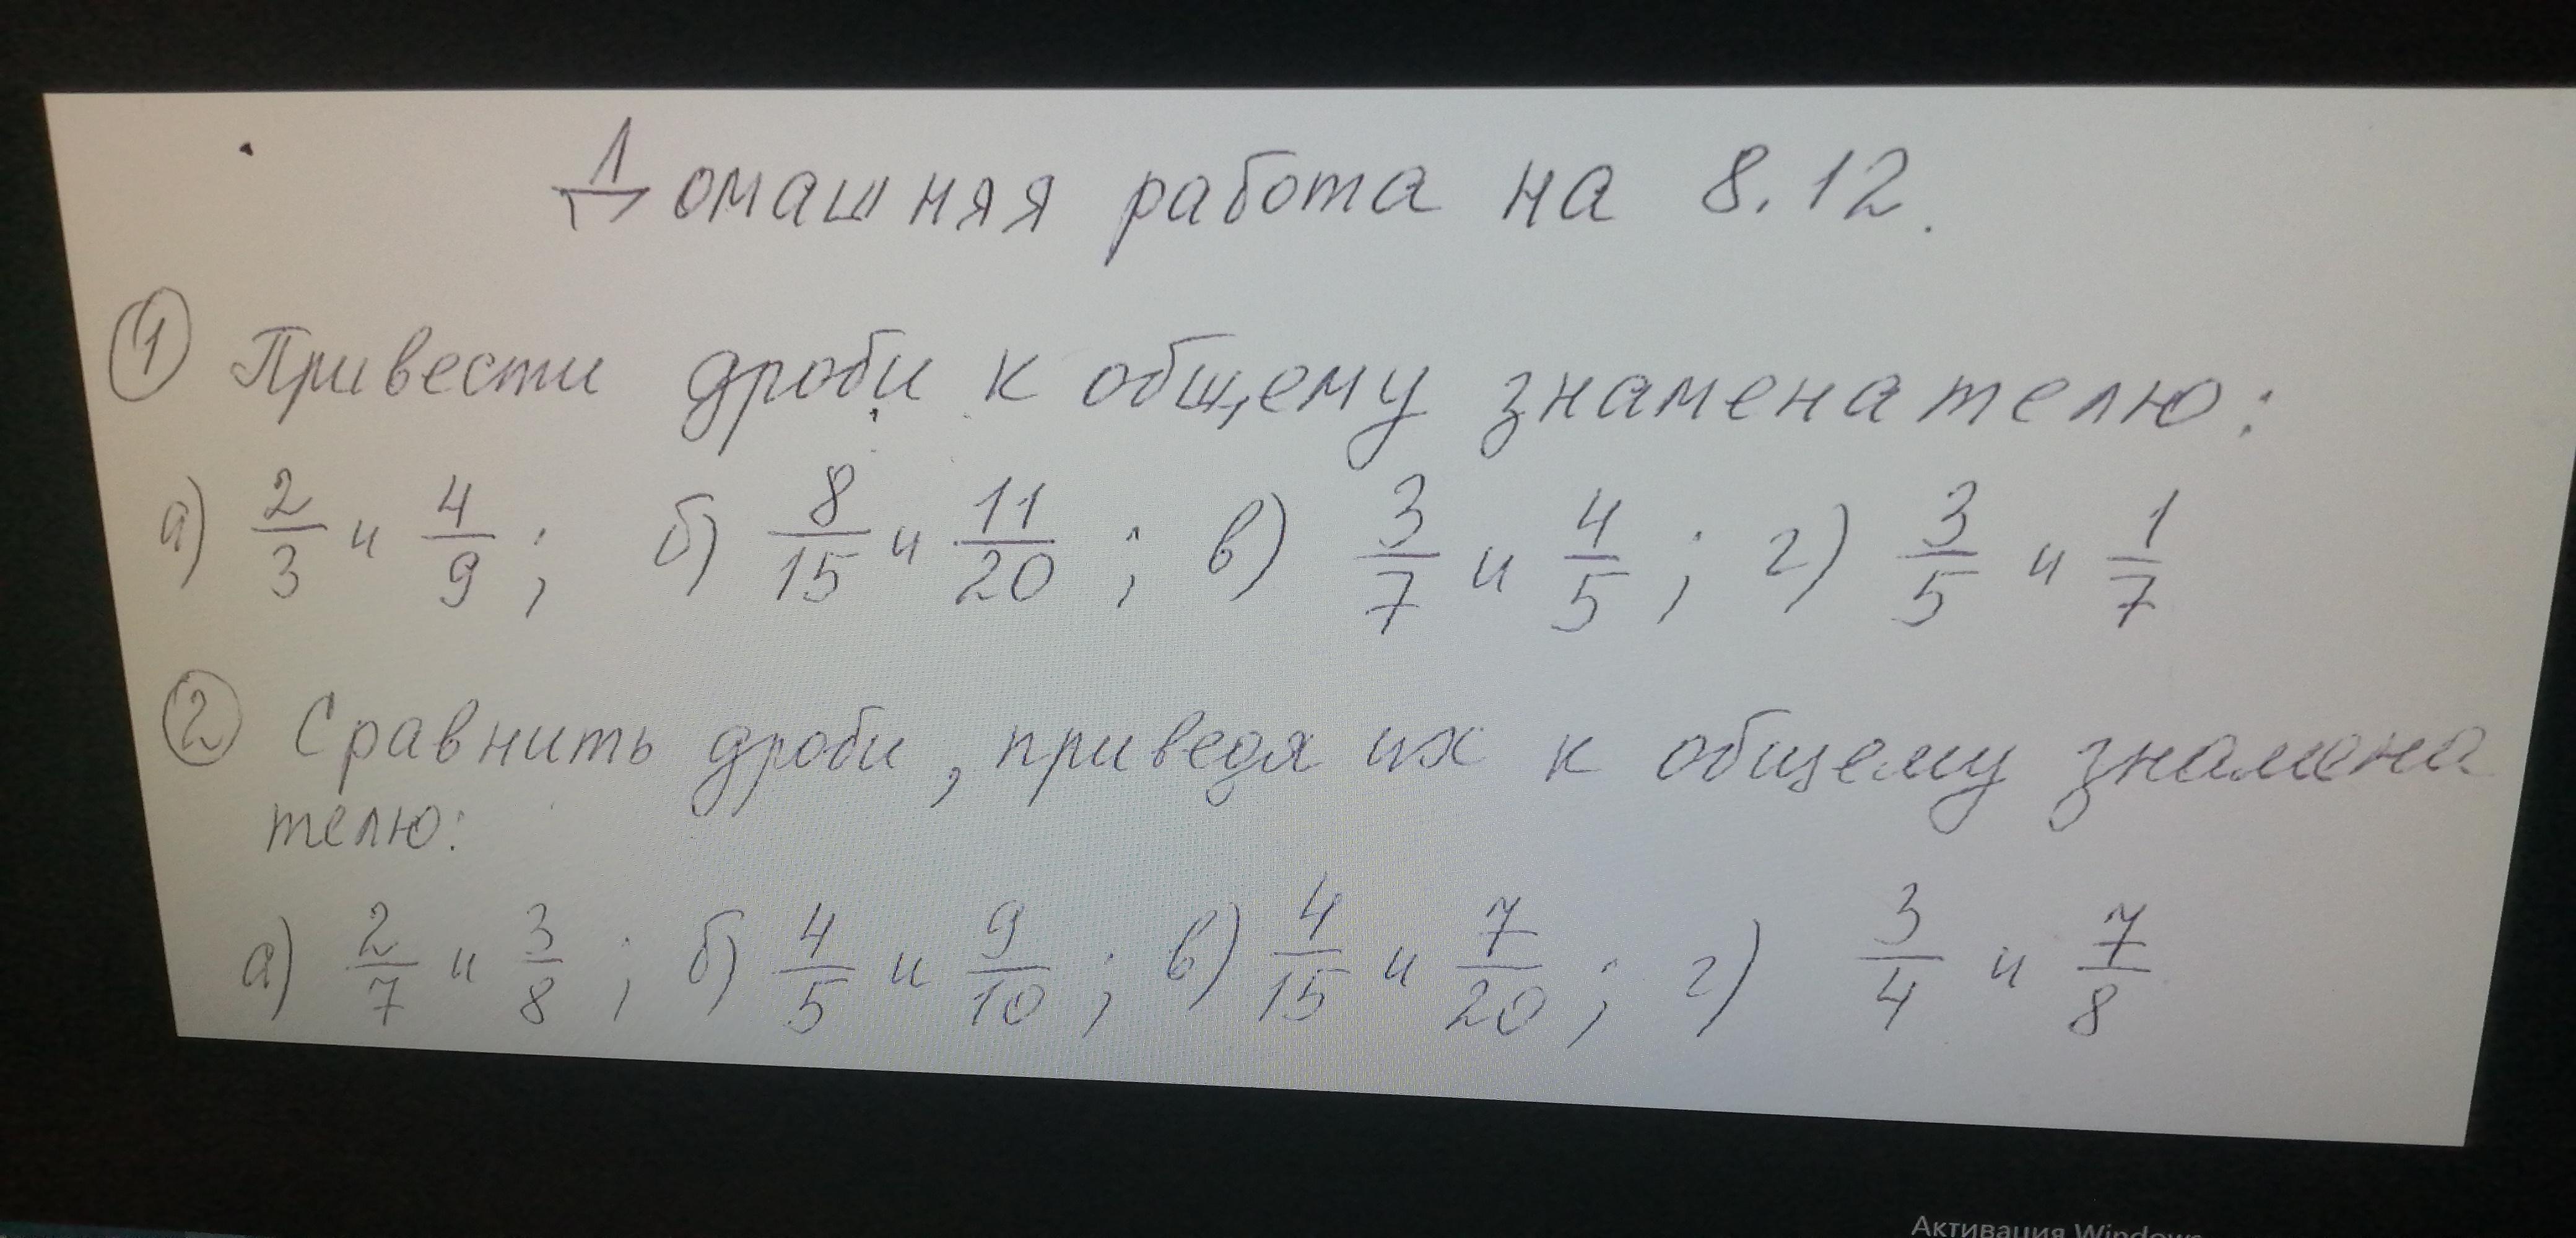 Домашняя работа на 8.12.
① Привести дроби к общему знаменателю:
а) 2/3 и 4/9; б) 8/15 и 11/20; в) 3/7 и 4/5; г) 3/5 и 1/7
② Сравнить дроби, приведя их к общему знамена
телю:
а) 2/7 и 3/8; б) 4/5 и 9/10; в) 4/15 и 7/20; г) 3/4 и 7/8
Активация Windows